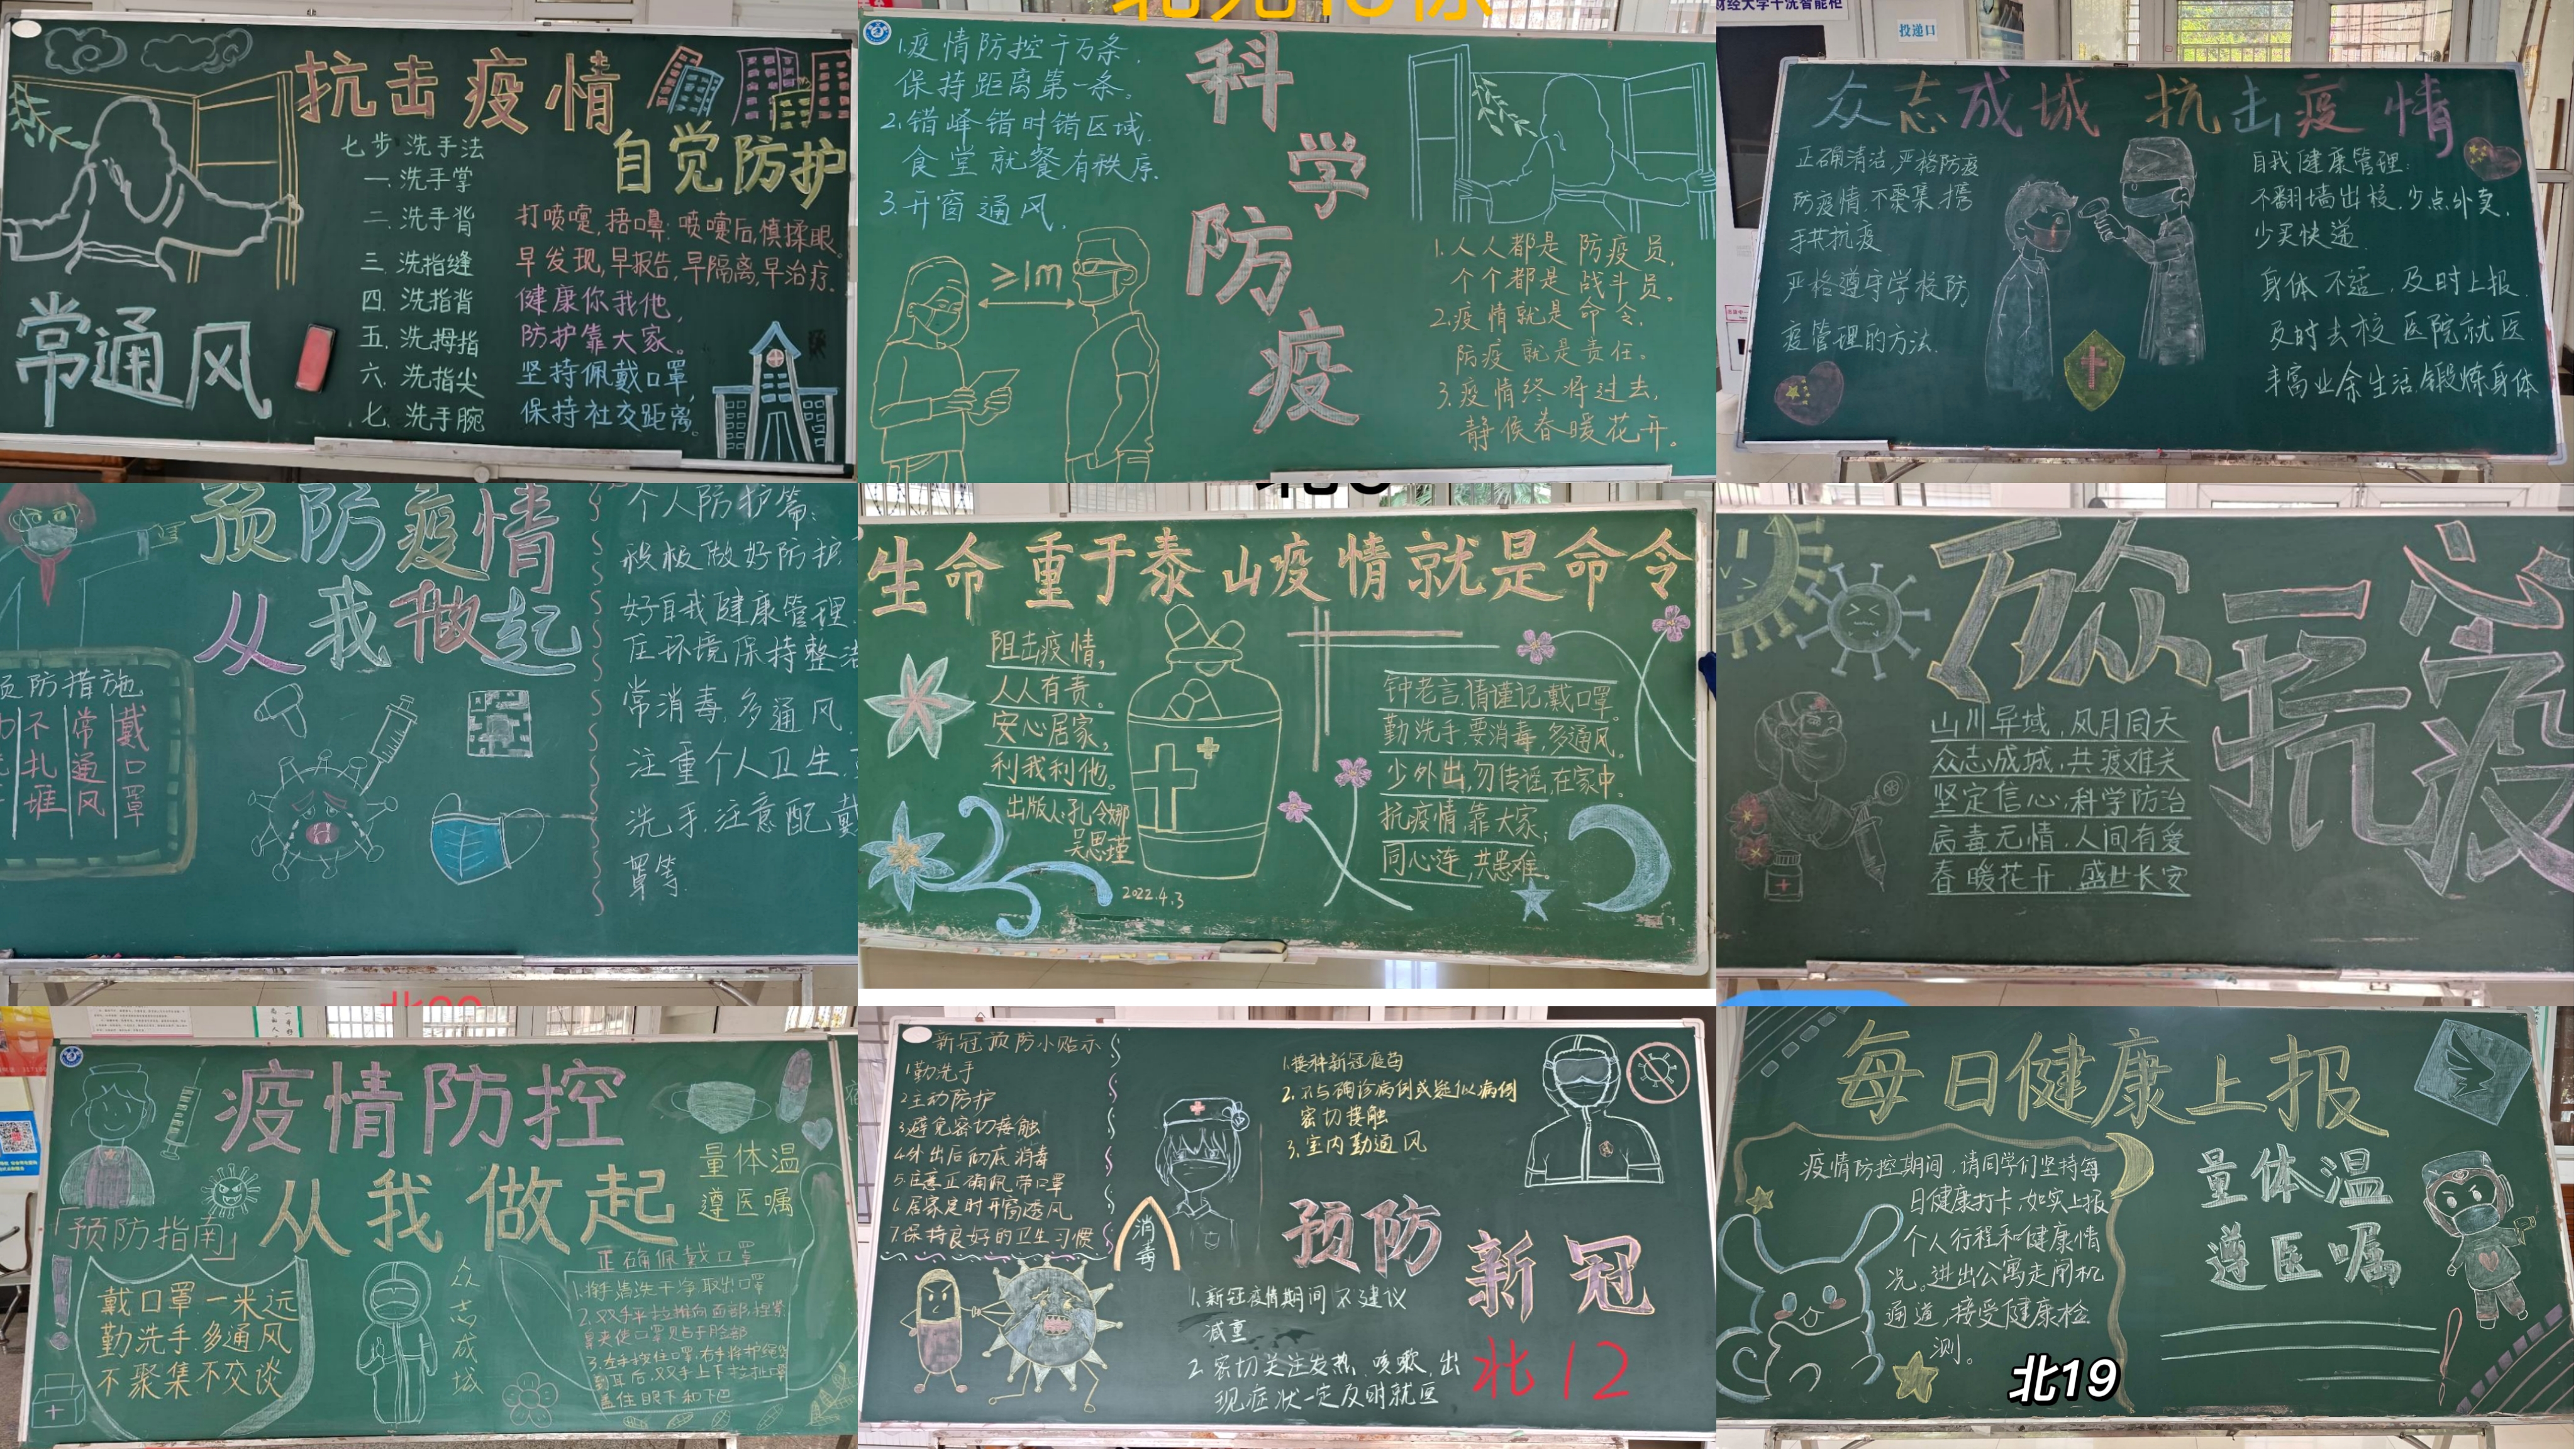 抗击疫情
自觉防护
七步洗手法
一.洗手掌
二.洗手背
三.洗指缝
四.洗指背
五.洗拇指
六.洗指尖
七.洗手腕
打喷嚏,捂口鼻:喷嚏后,慎揉眼。
早发现,早报告,早隔离,早治疗.
健康你我他,
防护靠大家。
坚持佩戴口罩,
保持社交距离.
常通风
1.疫情防控千万条,
保持距离第一条。
2.错峰错时错区域.
食堂就餐有秩序.
3.开窗通风.
科学防疫
≥1m
1.人人都是防疫员,
个个都是战斗员。
2.疫情就是命令,
防疫就是责任。
3.疫情终将过去,
静候春暖花开。
财经大学干洗智能柜
投递口
众志成城 抗击疫情
正确清洁.严格防疫
防疫情,不聚集,携
手共抗疫
严格遵守学校防
疫管理的方法.
自我健康管理:
不翻墙出校,少点外卖,
少买快递.
身体不适,及时上报.
及时去校医院就医
丰富业余生活,锻炼身体
预防疫情
从我做起
防措施
不扎堆
常通风
戴口罩
个人防护篇:
积极做好防护,
好自我健康管理.
环境保持整
常消毒,多通风.
注重个人卫生,
洗手.注意配戴
罩等.
生命重于泰山疫情就是命令
阻击疫情,
人人有责。
安心居家,
利我利他。
出版人:孔令娜
吴思瑾
2022.4.3
钟老言,请谨记,戴口罩。
勤洗手,要消毒,多通风。
少外出,勿传谣,在家中。
抗疫情,靠大家;
同心连,共患难。
万众一心
抗疫
山川异域,风月同天
众志成城,共渡难关
坚定信心,科学防治
病毒无情,人间有爱
春暖花开,盛世长安
疫情防控
从我做起
量体温
遵医嘱
「预防指南」
戴口罩一米远
勤洗手多通风
不聚集不交谈
众志成城
正确佩戴口罩
1.将手清洗干净取出口罩
新冠预防小贴示
1勤洗手
2主动防护
3避免密切接触
4外出后彻底消毒
5注意正确佩带口罩
6居家定时开窗透风
7保持良好的卫生习惯
消毒
1.接种新冠疫苗
2.不与确诊病例或疑似病例
密切接触
3.室内勤通风
预防
新冠
1.新冠疫情期间不建议
减重
2.密切关注发热、咳嗽,出
现症状一定及时就医
北12
每日健康上报
疫情防控期间,请同学们坚持每
日健康打卡,如实上报
个人行程和健康情
况。进出公寓走闸机
通道,接受健康检
测。
量体温
遵医嘱
北19